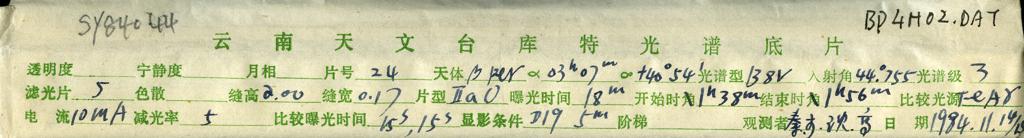 SY84044 BP4H02.DAT
云南天文台库特光谱底片
透明度 宁静度 月相 片号 24 天体 β per α 03h07m α +40°54′ 光谱型 B8V 入射角 44.°755 光谱级 3
滤光片 5 色散 缝高 2.00 缝宽 0.17 片型 IIaO 曝光时间 18m 开始时 1h38m 结束时 1h56m 比较光源 Fe Ar
电流 10mA 减光率 5 比较曝光时间 15s, 15s 显影条件 D19 5m 阶梯 观测者 日期 1984.11.19